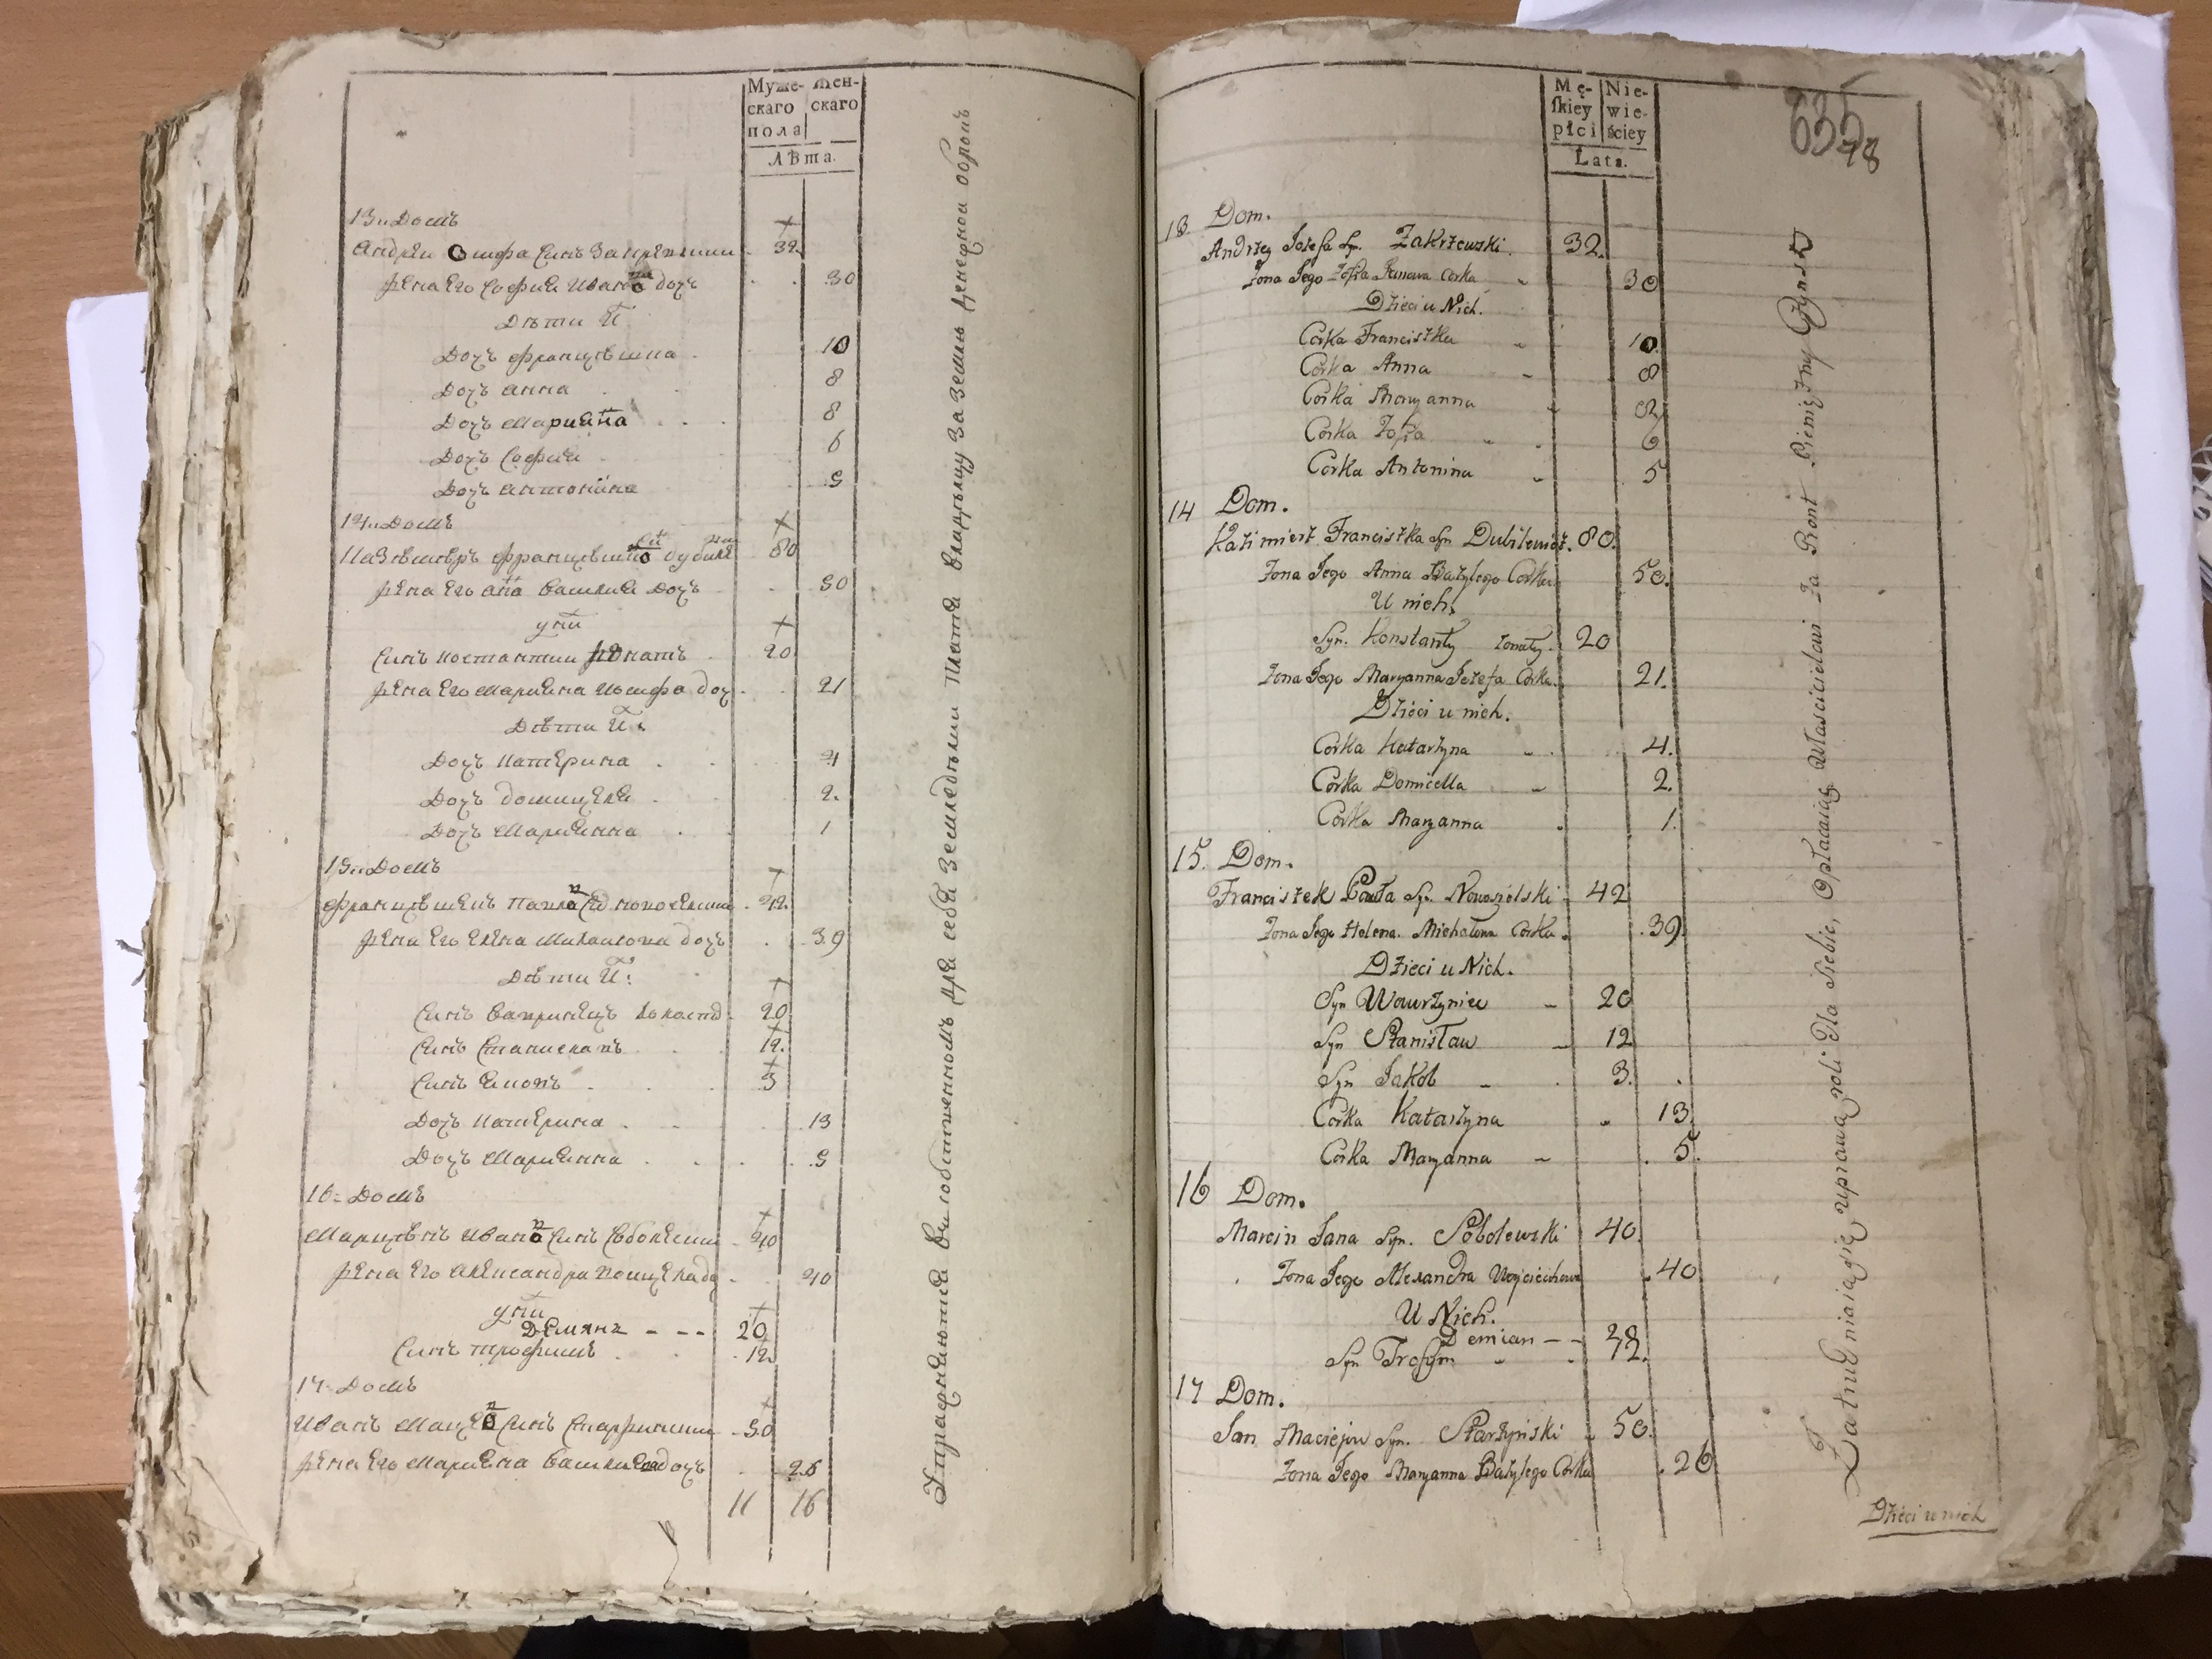 Муже-
скаго
пола
Жен-
скаго
Лѣта.
13й Домъ
Андрей Осифа Синъ Закревскии 32
жена Его Софиа Ивана дочъ 30
Дѣти Ихъ
Дочъ Францѣшка 10
Дочъ Анна 8
Дочъ Мариана 8
Дочъ Софиа 6
Дочъ Антонина 5
14й Домъ
80
жена Его Анна Василиа Дочъ 50
у нихъ
Синъ Костантии женатъ 20
жена Его Мариана Иосифа доч 21
Дѣти Ихъ
Дочъ Катерина 4
Дочъ Домицела 2
Дочъ Марианна 1
15й Домъ
Францѣшекъ Павла Новоселски 42
жена Его Елена Михаилова дочъ 39
Дѣти Ихъ
Синъ Вавринецъ 20
Синъ Станиславъ 12
Синъ Яковъ 3
Дочъ Катерина 13
Дочъ Марианна 5
16 Домъ
Марцѣнъ Ивана Синъ Соболевски 40
жена Его Александра 40
у нихъ
Демянъ - - - 20
Синъ Трофимъ 12
17 Домъ
Иванъ Синъ Старжински 50
жена Его Мариана Василиева дочъ 26
11 16
Упражняются въ собственномъ для себя Земледѣлии Платя владѣльцу за Землю Денежной оброкъ
Mę-
skiey
płci
Nie-
wie-
ściey
Lata.
635
78
13 Dom.
Andrzey Jozefa Syn. Zakrzewski. 32.
Zona Jego Zofia Janowa Corka 30
Dzieci u Nich.
Corka Franciszka 10.
Corka Anna 8
Corka Maryanna 8
Corka Zofia 6
Corka Antonina 5
14 Dom.
Kazimierz Franciszka Syn Dubilewicz. 80.
Zona Jego Anna Bazylego Corka 50.
U nich.
Syn. Konstanty zonaty. 20
Zona Jego Maryanna Jozefa Corka. 21.
Dzieci u nich.
Corka Katarzyna 4.
Corka Domicella 2.
Corka Maryanna 1.
15. Dom.
Franciszek Pawła Syn. Nowosielski 42
Zona Jego Helena Michałowa Corka. 39.
Dzieci u Nich.
Syn Wawrzyniec 20
Syn Stanisław 12
Syn Jakob 3.
Corka Katarzyna 13.
Corka Maryanna 5.
16 Dom.
Marcin Jana Syn. Sobolewski 40.
Zona Jego Alexandra Woyciechowa 40
U Nich.
Demian - -
Syn Trofym 12.
17 Dom.
Jan Macieja Syn. Starzynski 50.
Zona Jego Maryanna Bazylego Corka 26
Zatrudniaią się uprawą roli dla siebie, Opłacaiąc Właścicielowi za Gront Pieniężny Czynsz
Dzieci u nich